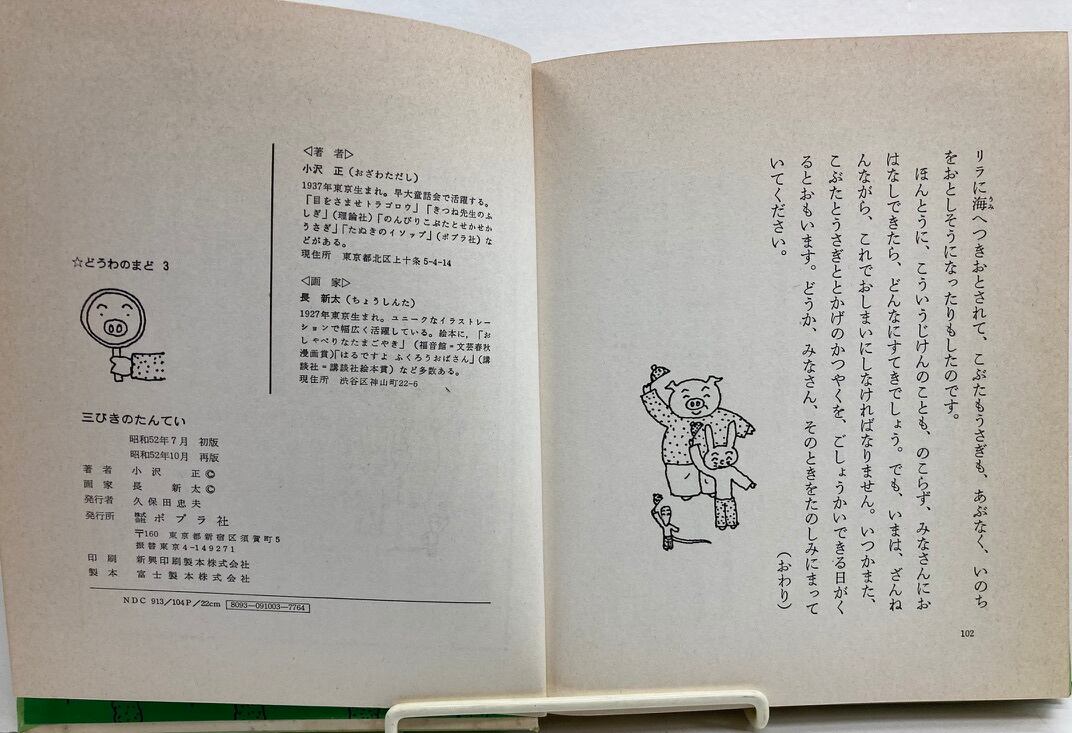 リラに海へつきおとされて、こぶたもうさぎも、あぶなく、いのち
をおとしそうになったりもしたのです。
ほんとうに、こういうじけんのことも、のこらず、みなさんにお
はなしできたら、どんなにすてきでしょう。でも、いまは、ざんね
んながら、これでおしまいにしなければなりません。いつかまた、
こぶたとうさぎととかげのかつやくを、ごしょうかいできる日がく
るとおもいます。どうか、みなさん、そのときをたのしみにまって
いてください。
(おわり)
102
◁著 者▷
小沢 正(おざわただし)
1937年東京生まれ。早大童話会で活躍する。
「目をさませトラゴロウ」「きつね先生のふ
しぎ」(理論社)「のんびりこぶたとせかせか
うさぎ」「たぬきのイソップ」(ポプラ社)な
どがある。
現住所 東京都北区上十条5-4-14
◁画 家▷
長 新太(ちょうしんた)
1927年東京生まれ。ユニークなイラストレー
ションで幅広く活躍している。絵本に,「お
しゃべりなたまごやき」(福音館=文芸春秋
漫画賞)「はるですよ ふくろうおばさん」(講
談社=講談社絵本賞)など多数ある。
現住所 渋谷区神山町22-6
☆どうわのまど 3
三びきのたんてい
昭和52年7月 初版
昭和52年10月 再版
著者 小沢 正©
画家 長 新太©
発行者 久保田忠夫
発行所 株式会社ポプラ社
〒160 東京都新宿区須賀町5
振替東京4-149271
印刷 新興印刷製本株式会社
製本 富士製本株式会社
NDC 913/104P/22cm 8093-091003-7764